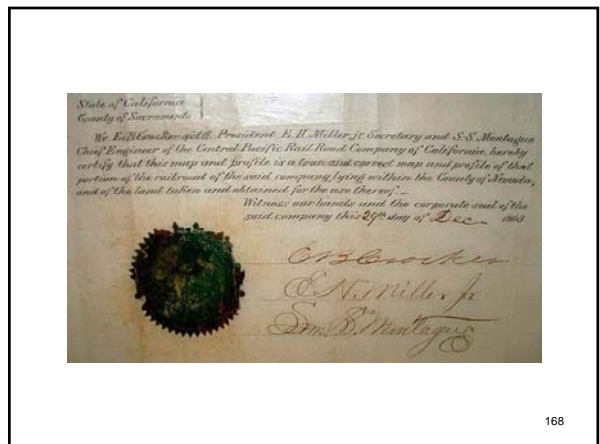 State of California
County of Sacramento
We E.B. Crocker actg. President E. H. Miller jr. Secretary and S. S. Montague
Chief Engineer of the Central Pacific Rail Road Company of California, hereby
certify that this map and profile is a true and correct map and profile of that
portion of the railroad of the said company, lying within the County of Nevada,
and of the land taken and obtained for the use thereof.—
Witness our hands and the corporate seal of the
said company this 29th day of Dec
E B Crocker
E. H. Miller Jr
Sam S. Montague
168